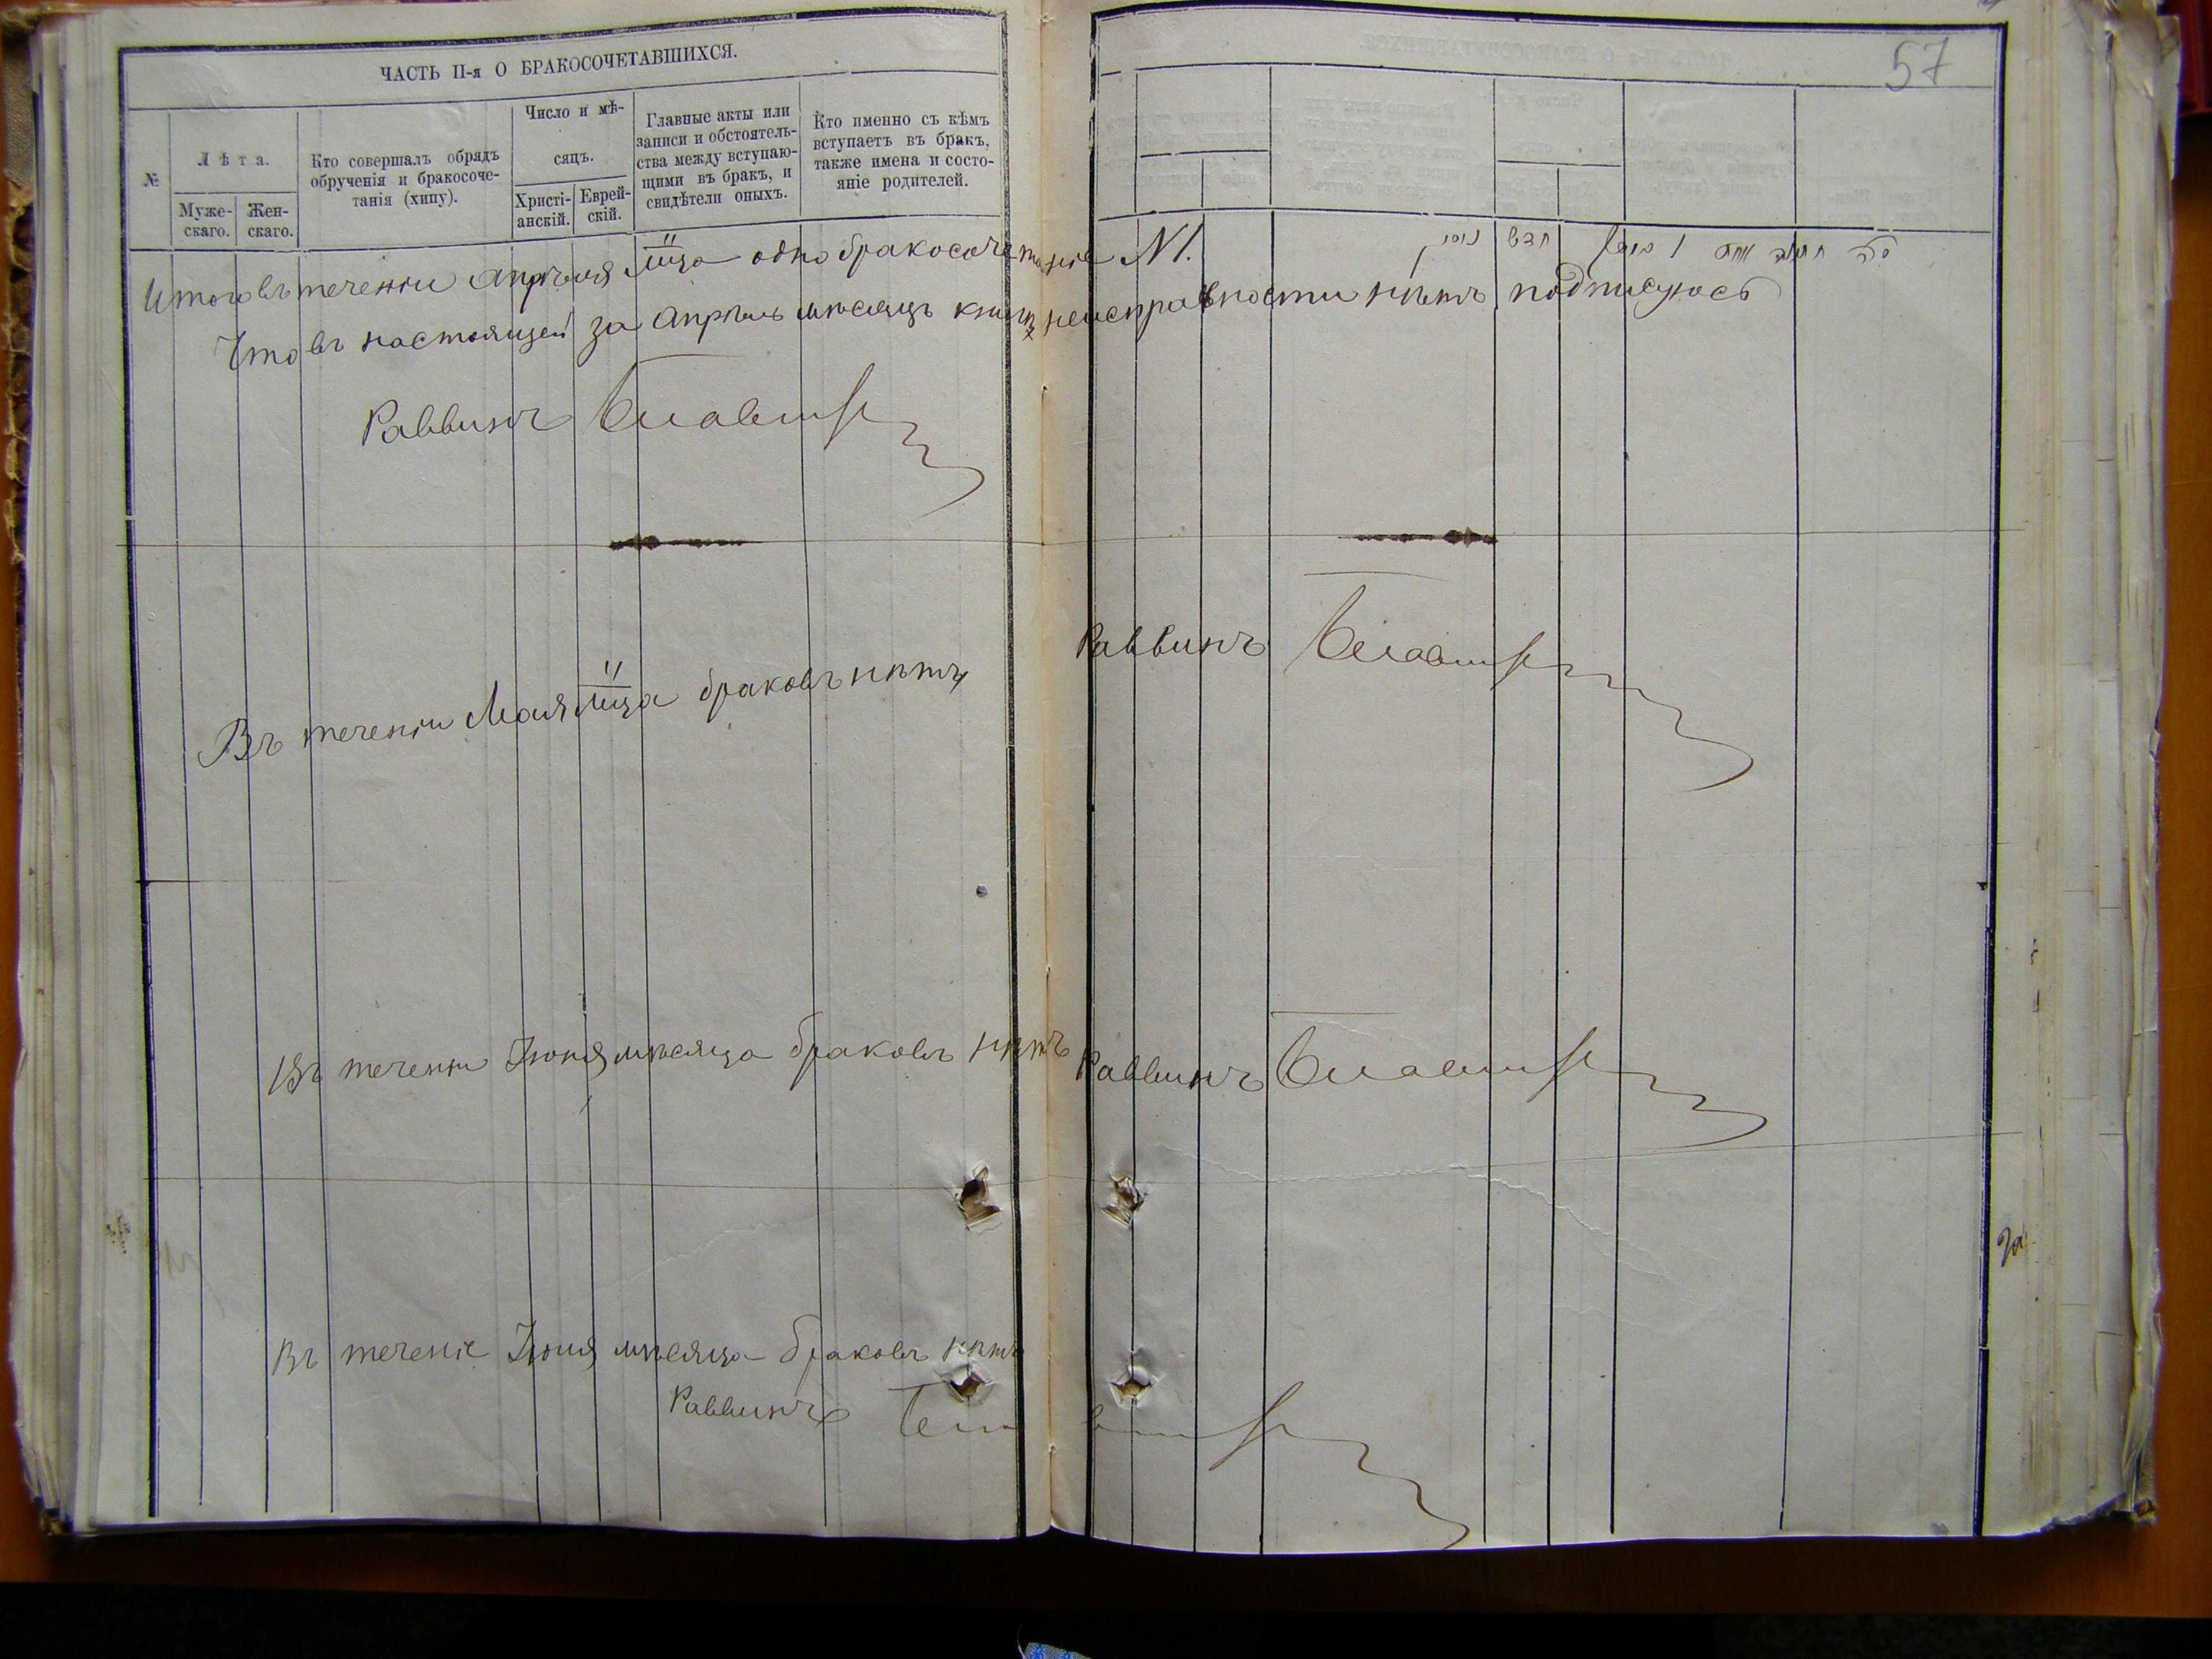 57
ЧАСТЬ II-я О БРАКОСОЧЕТАВШИХСЯ.
№
Лѣта.
Муже-
скаго.
Жен-
скаго.
Кто совершалъ обрядъ
обрученія и бракосоче-
танія (хипу).
Число и мѣ-
сяцъ.
Христі-
анскій.
Еврей-
скій.
Главные акты или
записи и обстоятель-
ства между вступаю-
щими въ бракъ, и
свидѣтели оныхъ.
Кто именно съ кѣмъ
вступаетъ въ бракъ,
также имена и состо-
яніе родителей.
Итого въ теченіи Апрѣля м̅ц̅а одно бракосочетаніе N 1.
Что въ настоящей за Апрѣль мѣсяцъ книгѣ неисправности нѣтъ подписуюсь
Раввинъ
Въ теченіи Мая м̅ц̅а браковъ нѣтъ
Раввинъ
Въ теченіи Іюня мѣсяца браковъ нѣтъ
Раввинъ
Въ теченіе Іюля мѣсяца браковъ нѣтъ
Раввинъ